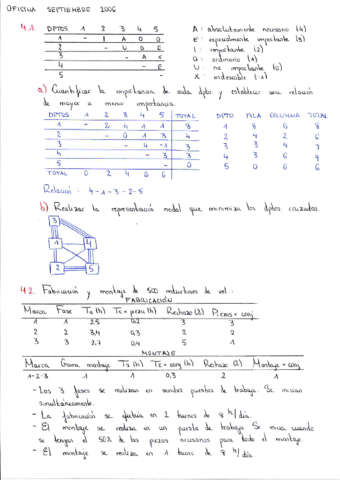 OFICINA SEPTIEMBRE 2006
4.1. DPTOS 1 2 3 4 5
1 - I A O O
2 - U O E
3 - A X
4 - E
5 -
A: absolutamente necesario (4)
E: especialmente importante (3)
I: importante (2)
O: ordinario (1)
U: no importante (0)
X: indeseable (-1)
a) Cuantificar la importancia de cada dpto. y establecer una relación
de mayor a menor importancia.
DPTOS 1 2 3 4 5 TOTAL
1 - 2 4 1 1 8
2 - 0 1 3 4
3 - 4 -1 3
4 - 3 3
5 - 0
TOTAL 0 2 4 6 6
DPTO FILA COLUMNA TOTAL
1 8 0 8
2 4 2 6
3 3 4 7
4 3 6 9
5 0 6 6
Relación: 4-1-3-2-5
b) Realizar la representación nodal que minimiza los dptos cruzados.
3
1 4
2 5
4.2. Fabricación y montaje de 500 reductores de vel.:
FABRICACIÓN
Marca Fase To (h) Tc + pieza (h) Rechazo (%) Piezas + conj
1 1 2,5 0,2 3 3
2 2 3,4 0,3 2 2
3 3 2,7 0,4 5 1
MONTAJE
Marca Grama montaje To (h) Tc + conj (h) Rechazo (%) Montaje + conj
1-2-3 1 1 0,3 2 1
- Las 3 fases se realizan en sendos puestos de trabajo. Se inician
simultáneamente.
- La fabricación se efectúa en 2 turnos de 8 h/día
- El montaje se realiza en un puesto de trabajo. Se inicia cuando
se tengan el 50% de las piezas necesarias para todo el montaje.
- El montaje se realiza en 1 turno de 8 h/día.